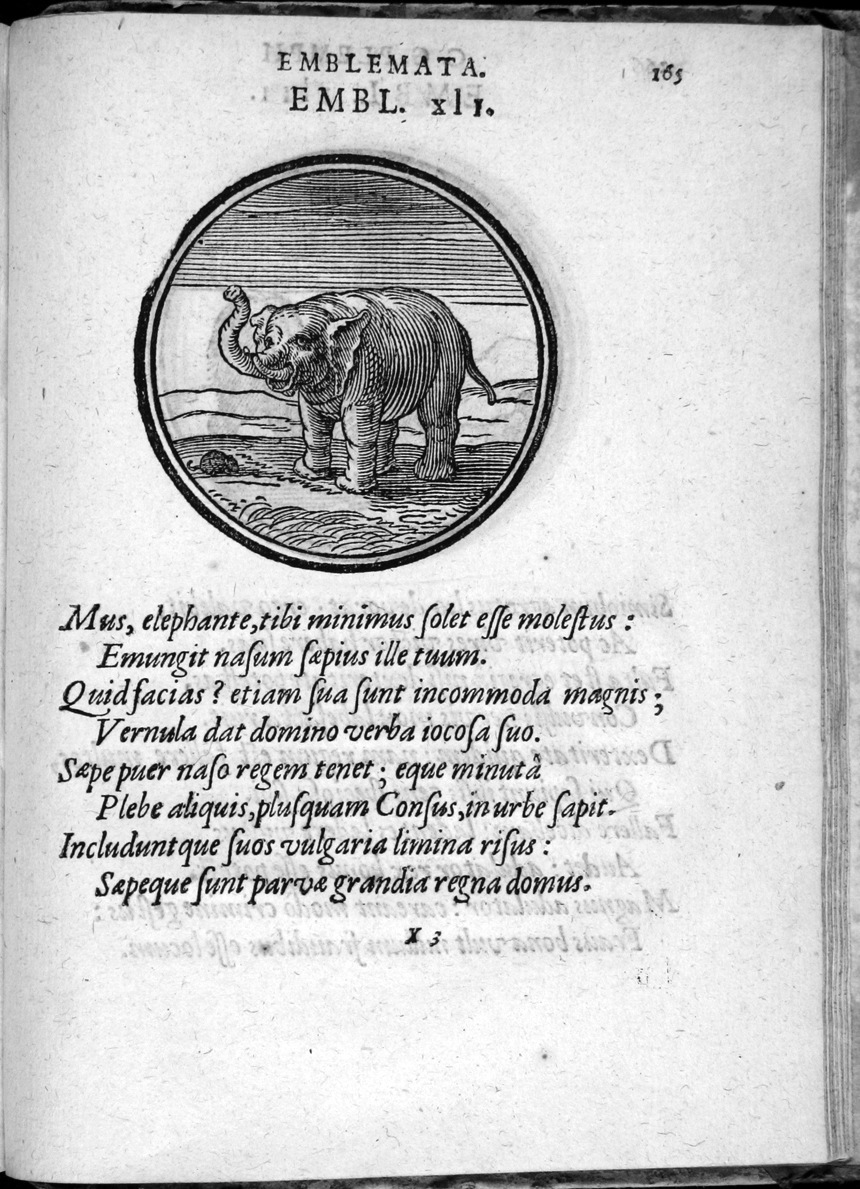 EMBLEMATA. 165
EMBL. xlı.
Mus, elephante, tibi minimus ſolet eſſe moleſtus :
Emungit naſum ſæpius ille tuum.
Quid facias ? etiam ſua ſunt incommoda magnis ;
Vernula dat domino verba iocoſa ſuo.
Sæpe puer naſo regem tenet ; eque minutâ
Plebe aliquis, pluſquam Conſus, in urbe ſapit.
Includuntque ſuos vulgaria limina riſus :
Sæpeque ſunt parvæ grandia regna domus.
X 3